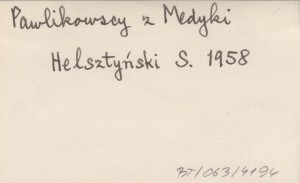 Pawlikowscy z Medyki
Helsztyński S. 1958
BT/063/4194